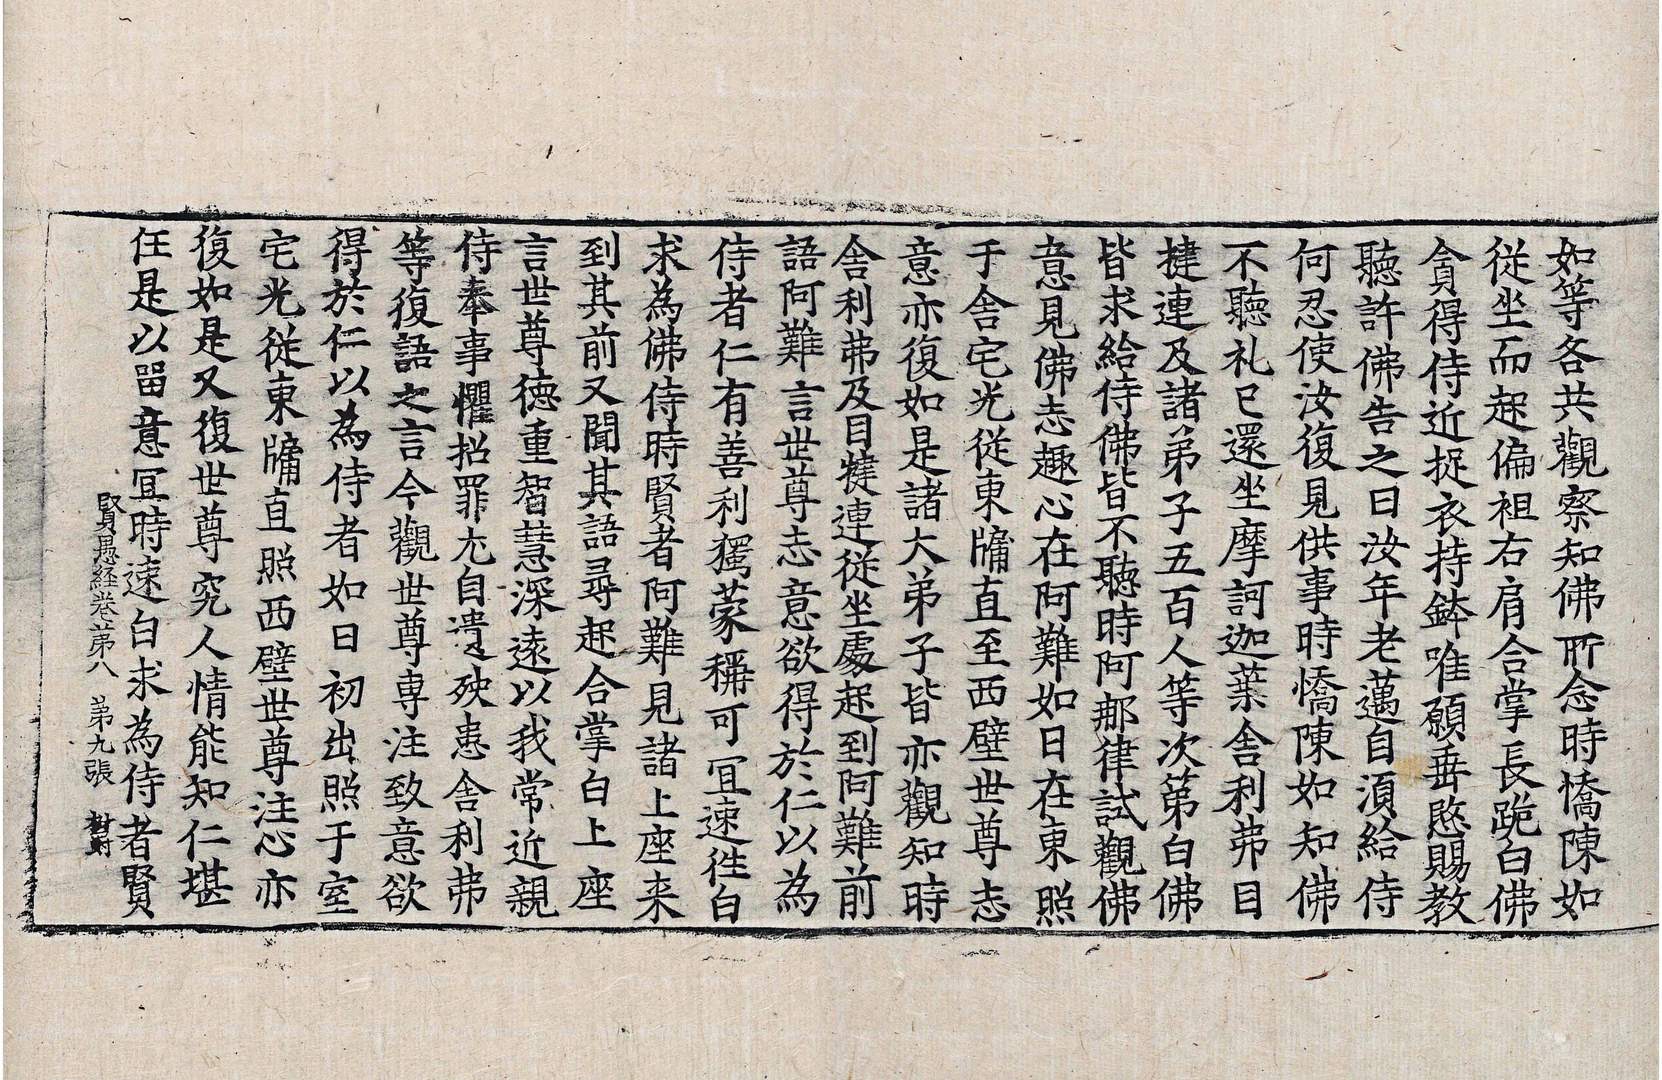 如等各共觀察知佛所念時憍陳如
從坐而起偏袒右肩合掌長跪白佛
貪得侍近捉衣持鉢唯願垂愍賜教
聽許佛告之曰汝年老邁自須給侍
何忍使汝復見供事時憍陳如知佛
不聽礼已還坐摩訶迦葉舍利弗目
揵連及諸弟子五百人等次第白佛
皆求給侍佛皆不聽時阿那律試觀佛
意見佛志趣心在阿難如日在東照
于舍宅光從東牖直至西壁世尊志
意亦復如是諸大弟子皆亦觀知時
舍利弗及目揵連從坐處起到阿難前
語阿難言世尊志意欲得於仁以為
侍者仁有善利獨蒙稱可宜速往白
求為佛侍時賢者阿難見諸上座来
到其前又聞其語尋起合掌白上座
言世尊德重智慧深遠以我常近親
侍奉事懼招罪尤自遺殃患舍利弗
等復語之言今觀世尊専注致意欲
得於仁以為侍者如日初出照于室
宅光從東牖直照西壁世尊注心亦
復如是又復世尊究人情能知仁堪
任是以留意冝時速白求為侍者賢
賢愚経卷第八 第九張